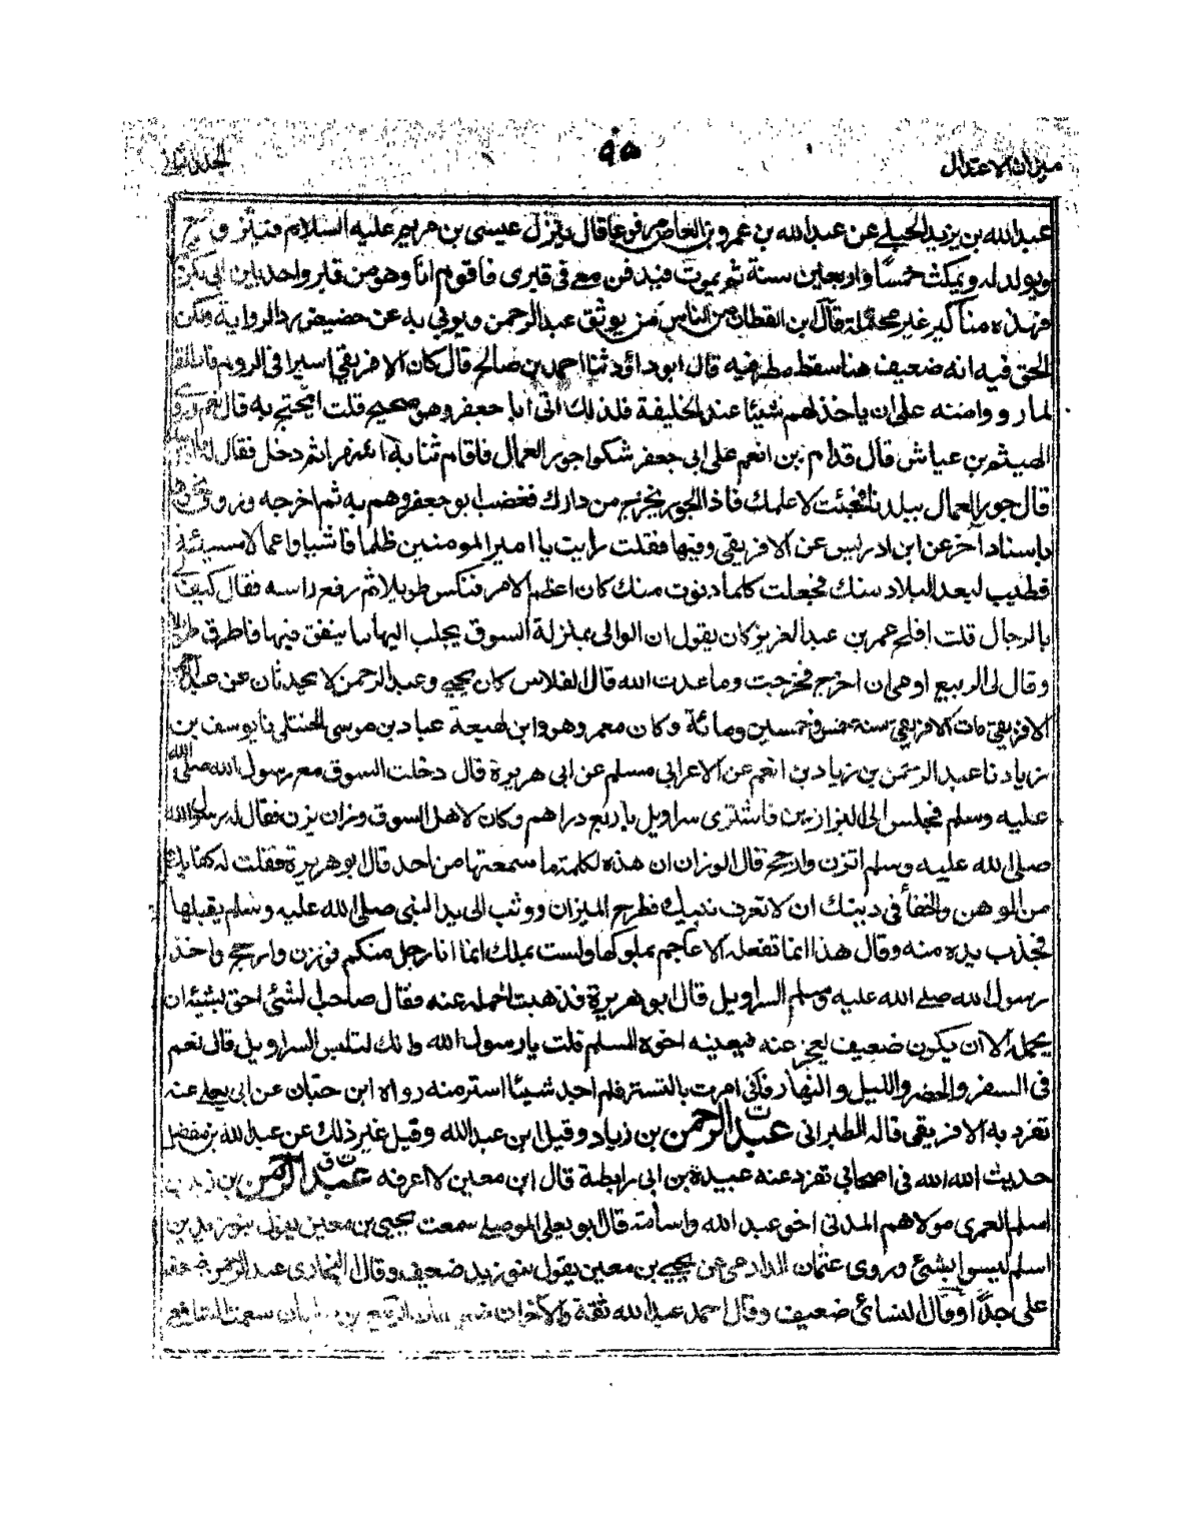 ميزان الاعتدال
٩٥
الجلد الثانى
عبدالله بن يزيد الحبلے عن عبدالله بن عمرو بن العاص مرفوعا قال ينزل عيسى بن مريم عليه السلام فيتزوج
ويولد له ويمكث خمسًا واربعين سنة ثم يموت فيدفن معى فى قبرى فاقوم انا وهو من قبر واحد بين ابى بكر
فهذه مناكير غير محتملة قال ابن القطان من الناس من يوثق عبدالرحمن ويربى به عن حضيض رد الرواية ولكن
الحق فيه انه ضعيف هنا سقط مطر فيه قال ابوداؤد ثنا احمد بن صالح قال كان الافريقي اسيرا فى الروم
لما راو وامنه على ان ياخذ لهم شيئا عند الخليفة فلذلك اتى ابا جعفر وهو صحيح قلت ايحتج به قال نعم
الهيثم بن عياش قال قدام بن انعم على ابى جعفر شكوا جور العمال فاقام ثنا به اشهرا ثم دخل فقال له
قال جور العمال ببلدنا فجئت لاعلمك فاذا الجور يخرج من دارك فغضب ابو جعفر وهم به ثم اخرجه وروى
باسناد آخر عن ابن ادريس عن الافريقى وفيها فقلت رايت يا امير المومنين ظلما فاشيا واعمالا سيئة
فظنيت لبعد البلاد منك فجعلت كلما دنوت منك كان اعظم الامر فنكس طويلا ثم رفع راسه فقال كيف لى
بالرجال قلت افلح عمر بن عبدالعزيز كان يقول ان الوالى بمنزلة السوق يجلب اليها ما ينفق فيها فاطرق طويلا
وقال لى الربيع اومى ان اخرج فخرجت وما عدت الله قال الفلاس كان يحيى وعبدالرحمن لا يحدثان عن
الافريقى مات الافريقى سنة خمس و خمسين ومائة وكان معمر وهو وابن لهيعة عباد بن موسى الختلى نا يوسف بن
زياد نا عبد الرحمن بن زياد بن انعم عن الاعرابى مسلم عن ابى هريرة قال دخلت السوق مع رسول الله صلى الله
عليه وسلم فجلس الى البزازين فاشترى سراويل باربع دراهم وكان لاهل السوق وزان يزن فقال له رسول الله
صلى الله عليه وسلم اتزن وارجح قال الوزان ان هذه لكلمة ما سمعتها من احد قال ابو هريرة فقلت له كفا بك
من الوهن والجفا فى دينك ان لا تعرف نبيك فطرح الميزان ووثب الى يد النبى صلى الله عليه وسلم يقبلها
فجذب يده منه وقال هذا انما تفعله الاعاجم بملوكها ولست بملك انما انا رجل منكم فوزن وارجح واخذ
رسول الله صلے الله عليه وسلم السراويل قال ابو هريرة فذهبت لاحمله عنه فقال صاحب الشئ احق بشيئه ان
يحمله الا ان يكون ضعيف يعجز عنه فيعينه اخوه المسلم قلت يا رسول الله وانك لتلبس السراويل قال نعم
فى السفر والحضر والليل والنهار فانى امرت بالتستر فلم اجد شيئا استر منه رواه ابن حبان عن ابى يعلے عنه
تفرد به الافريقى قاله الطبرانى عبد الرحمن بن زياد وقيل ابن عبدالله وقيل غير ذلك عن عبدالله بن مغفل
حديث الله الله فى اصحابى تفرد عنه عبيدة بن ابى رابطة قال ابن معين لا اعرفه عبد الرحمن بن زيد بن
اسلم العمرى مولاهم المدنى اخو عبد الله واسامة قال ابو يعلى الموصلے سمعت يحيى بن معين يقول بنو زيد بن
اسلم ليسوا بشئ وروى عثمان الدارمى عن يحيے بن معين يقول بنو زيد ضعيف وقال البخارى عبد الرحمن ضعفه
على جدًا وقال النسائى ضعيف وقال احمد عبدالله ثقة والآخران سمعت الشافعى